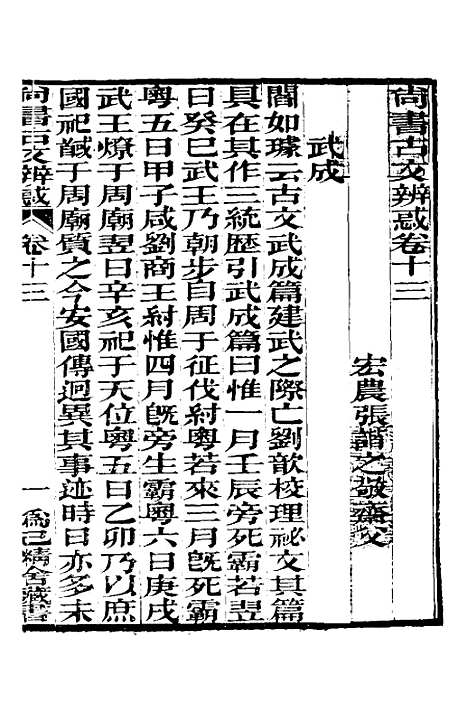 尙書古文辨惑卷十三
宏農張諧之敬齋父
武成
閻如璩云古文武成篇建武之際亡劉歆校理祕文其篇
具在其作三統歷引武成篇曰惟一月壬辰旁死霸若翌
日癸巳武王乃朝步自周于征伐紂粵若來三月旣死霸
粵五日甲子咸劉商王紂惟四月旣旁生霸粵六日庚戌
武王燎于周廟翌日辛亥祀于天位粵五日乙卯乃以庶
國祀馘于周廟質之今安國傳迥異其事迹時日亦多未
尙書古文辨惑 卷十三 一 爲己精舍藏書